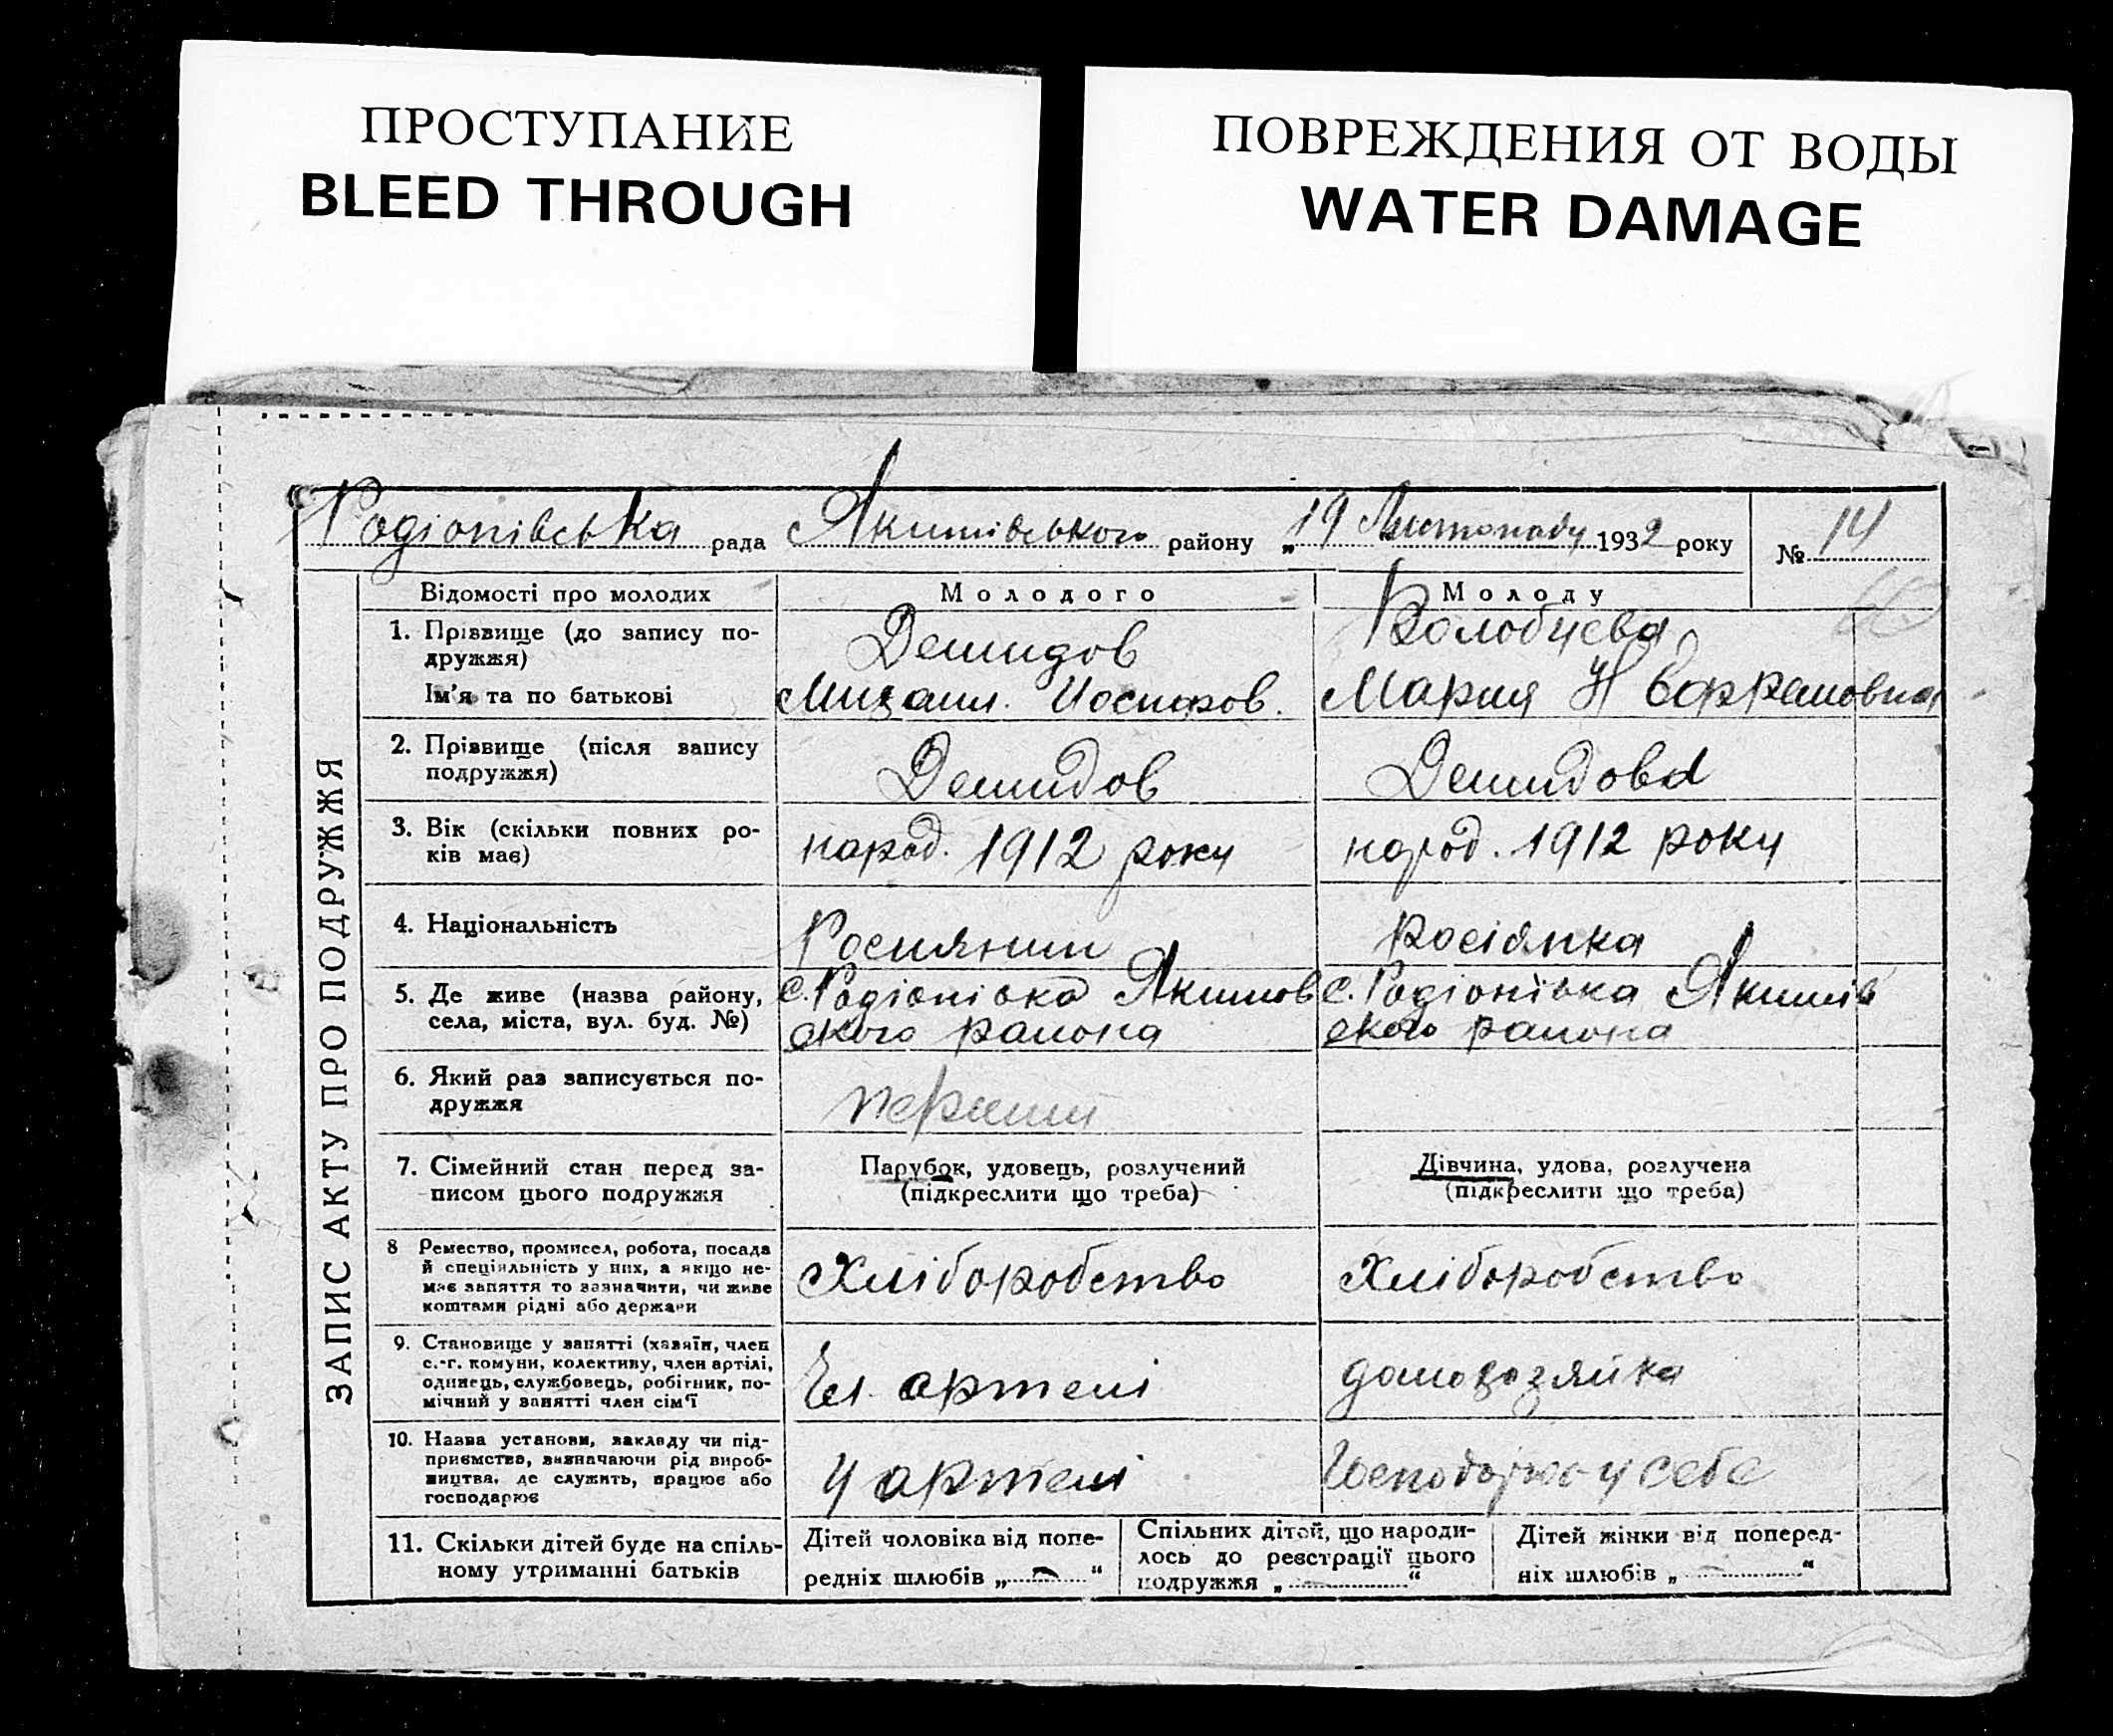 ПРОСТУПАНИЕ
BLEED THROUGH
ПОВРЕЖДЕНИЯ ОТ ВОДЫ
WATER DAMAGE
Родіонівська рада Якимівського району „19 Листопаду 1932 року № 14
ЗАПИС АКТУ ПРО ПОДРУЖЖЯ
Відомості про молодих Молодого Молоду
1. Прізвище (до запису по-
дружжя)
Демидов
Колобцева
Ім'я та по батькові
Михаил. Иосифов.
Мария
2. Прізвище (після запису
подружжя)
Демидов
Демидова
3. Вік (скільки повних ро-
ків має)
народ. 1912 року
народ. 1912 року
4. Національність
Росиянин
Росіянка
5. Де живе (назва району,
села, міста, вул. буд. №)
с. Родіонівка Якимов
ского района
с. Родіонівка Якимів
ского района
6. Який раз записується по-
дружжя
перший
7. Сімейний стан перед за-
писом цього подружжя
Парубок, удовець, розлучений
(підкреслити що треба)
Дівчина, удова, розлучена
(підкреслити що треба)
8 Ремество, промисел, робота, посада
й спеціяльність у них, а якщо не-
має заняття то зазначити, чи живе
коштами рідні або держави
Хліборобство
Хліборобство
9. Становище у занятті (хазяїн, член
с.-г. комуни, колективу, член артілі,
одинець, службовець, робітник, по-
мічний у занятті член сім'ї
Чл. артелі
домохозяйка
10. Назва установи, закладу чи під-
приємства, зазначаючи рід вироб-
ництва, де служить, працює або
господарює
У артелі
у себе
11. Скільки дітей буде на спіль-
ному утриманні батьків
Дітей чоловіка від попе-
редніх шлюбів „ — “
Спільних дітей, що народи-
лось до реєстрації цього
подружжя „ — “
Дітей жінки від поперед-
ніх шлюбів „ — “